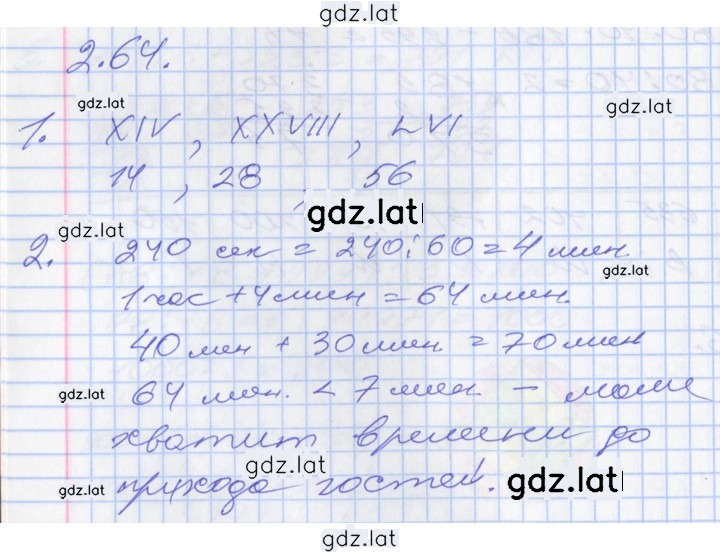 gdz.lat
2.64.
gdz.lat
gdz.lat
1. XIV, XXVIII, LVI
14, 28, 56
gdz.lat
gdz.lat
2. 240 сек = 240:60 = 4 мин.
gdz.lat
1 час + 4 мин = 64 мин.
40 мин + 30 мин = 70 мин
gdz.lat
64 мин. < 7 мин - маме
хватит времени до
gdz.lat
gdz.lat
прихода гостей.
gdz.lat
gdz.lat